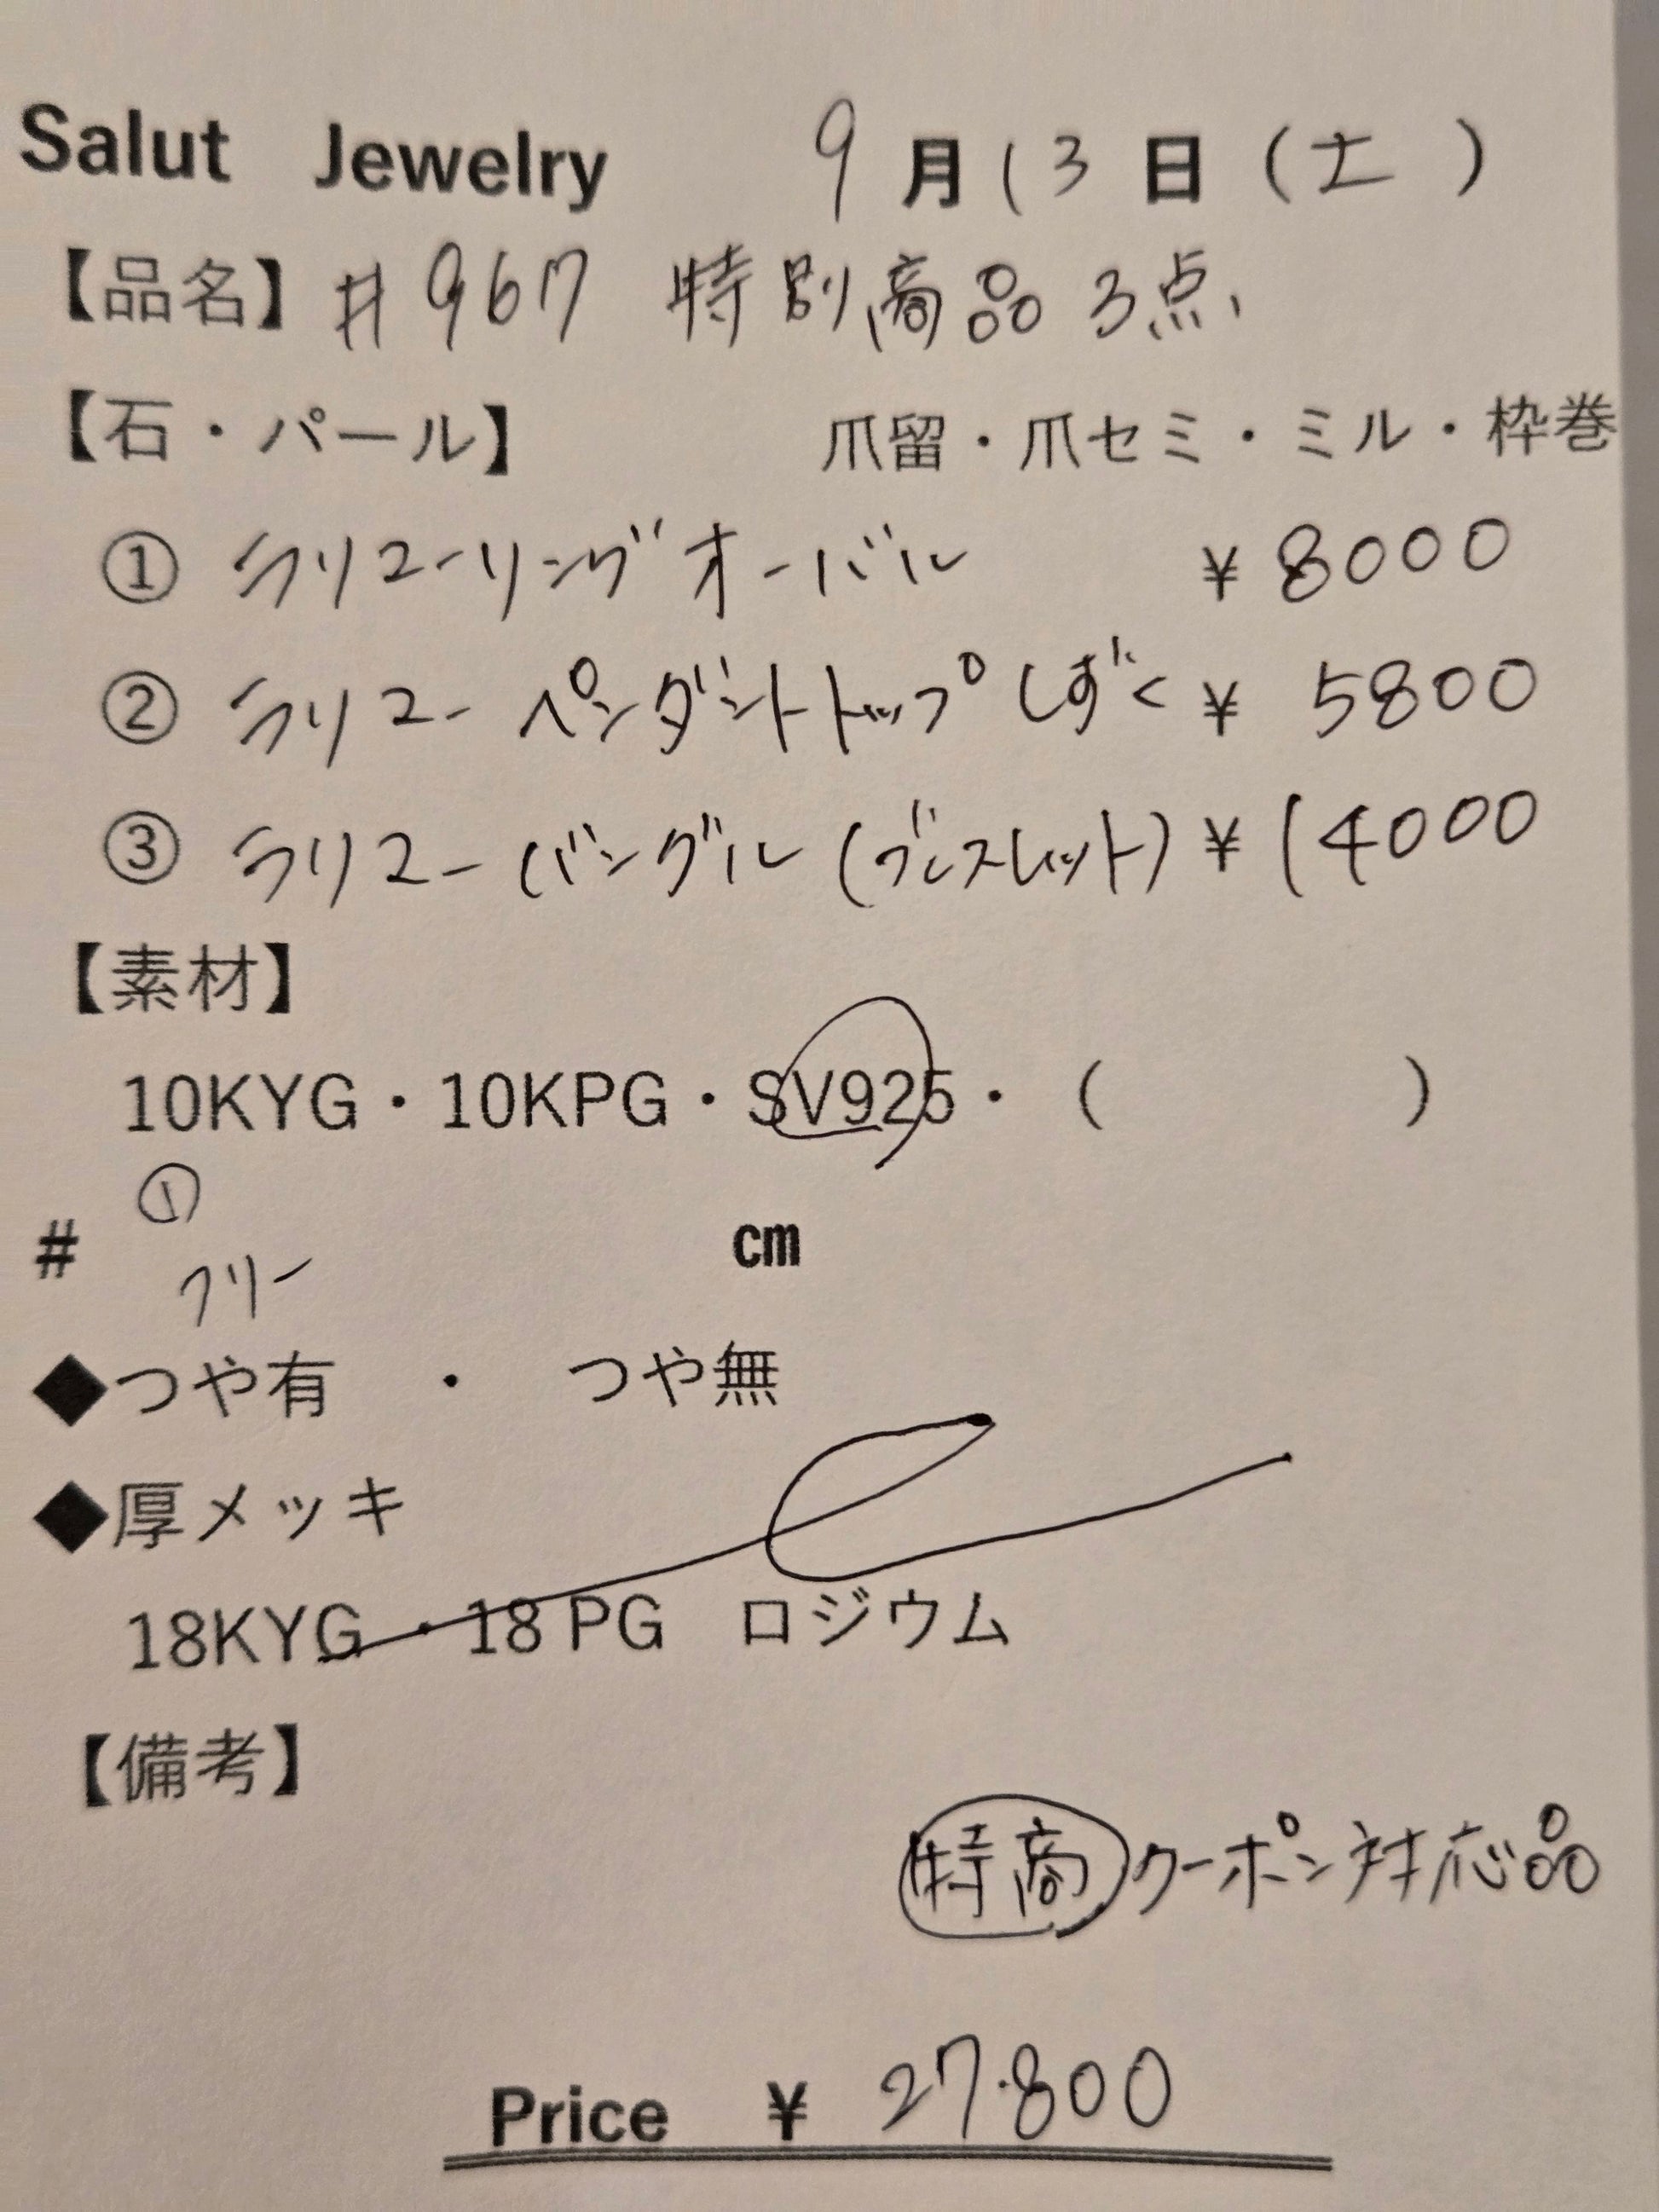 Salut Jewelry 9月13日(土)
【品名】#967 特別商品3点、
【石・パール】 爪留・爪セミ・ミル・枠巻
① ラリユーリングオーバル ¥8000
② ラリユーペンダントトップしずく ¥5800
③ ラリユーバングル(ブレスレット) ¥14000
【素材】
10KYG・10KPG・SV925・( )
①
# フリー cm
◆つや有 ・ つや無
◆厚メッキ
18KYG・18PG ロジウム
【備考】
特商 クーポン対応品
Price ¥ 27.800